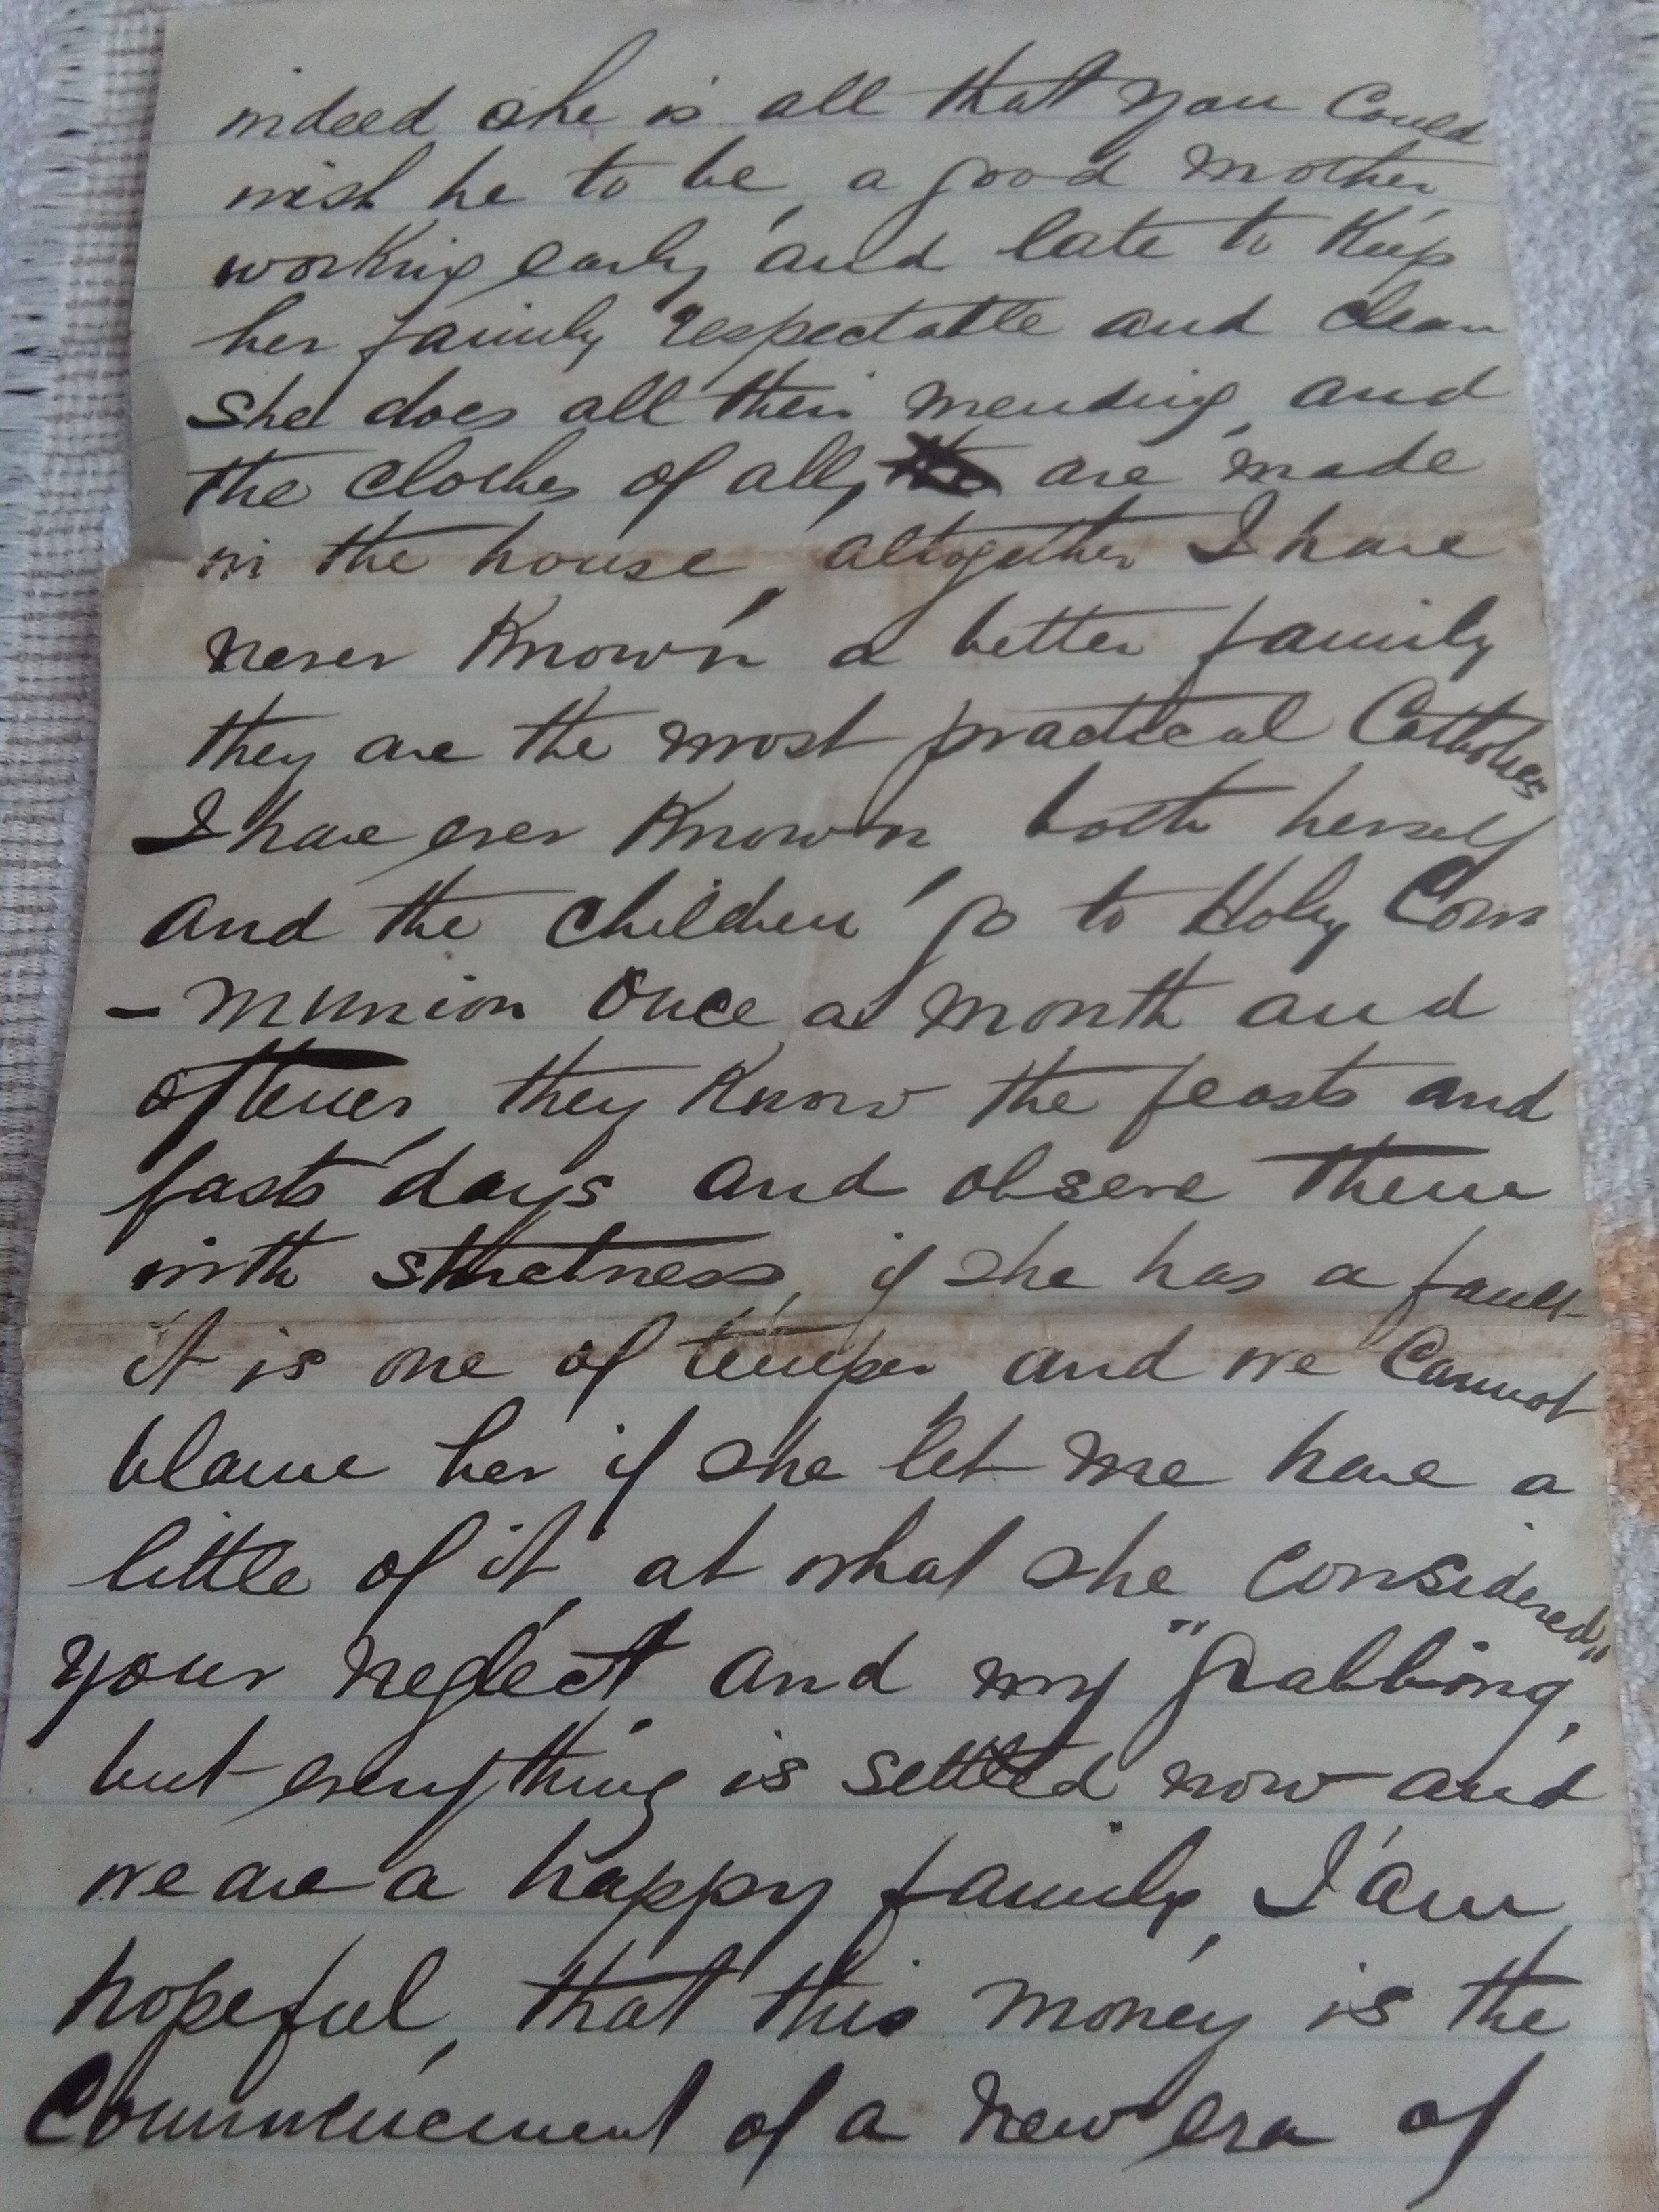 indeed she is all that you could
wish he to be, a good mother,
working early, and late to keep
her family respectable and clean
she does all their mending, and
the clothes of all, are made
in the house, altogether I have
never known a better family
they are the most practical Catholics
I have ever known both herself
and the children go to Holy Com
- munion once a month and
oftener, they know the feasts and
fasts days and obseve them
with strictness, if she has a fault
it is one of temper, and we cannot
blame her if she let me have a
little of it, at what she considered
your neglect and my "Grabbing,"
but everything is settled now and
we are a happy family, I am
hopeful, that this money is the
Commencement of a new era of